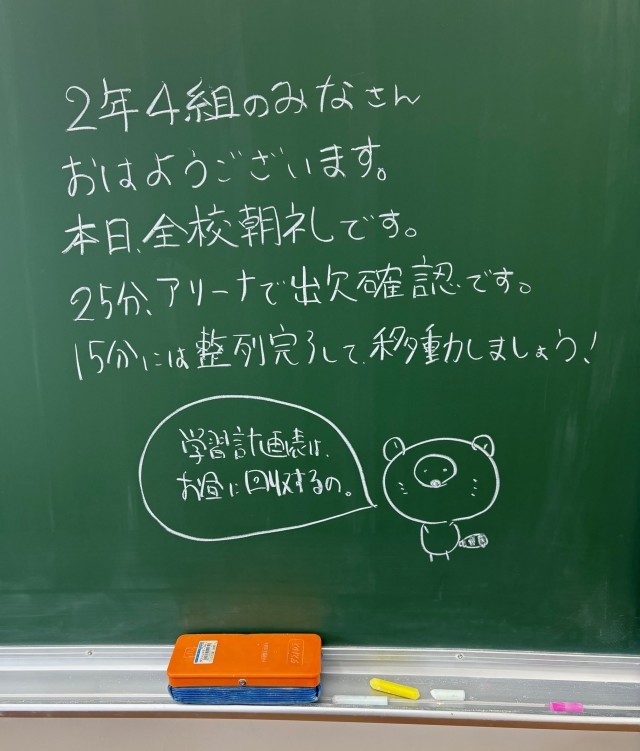 2年4組のみなさん
おはようございます。
本日、全校朝礼です。
25分、アリーナで出欠確認です。
15分には整列完了して、移動しましょう!
学習計画表は、
お昼に回収するの。